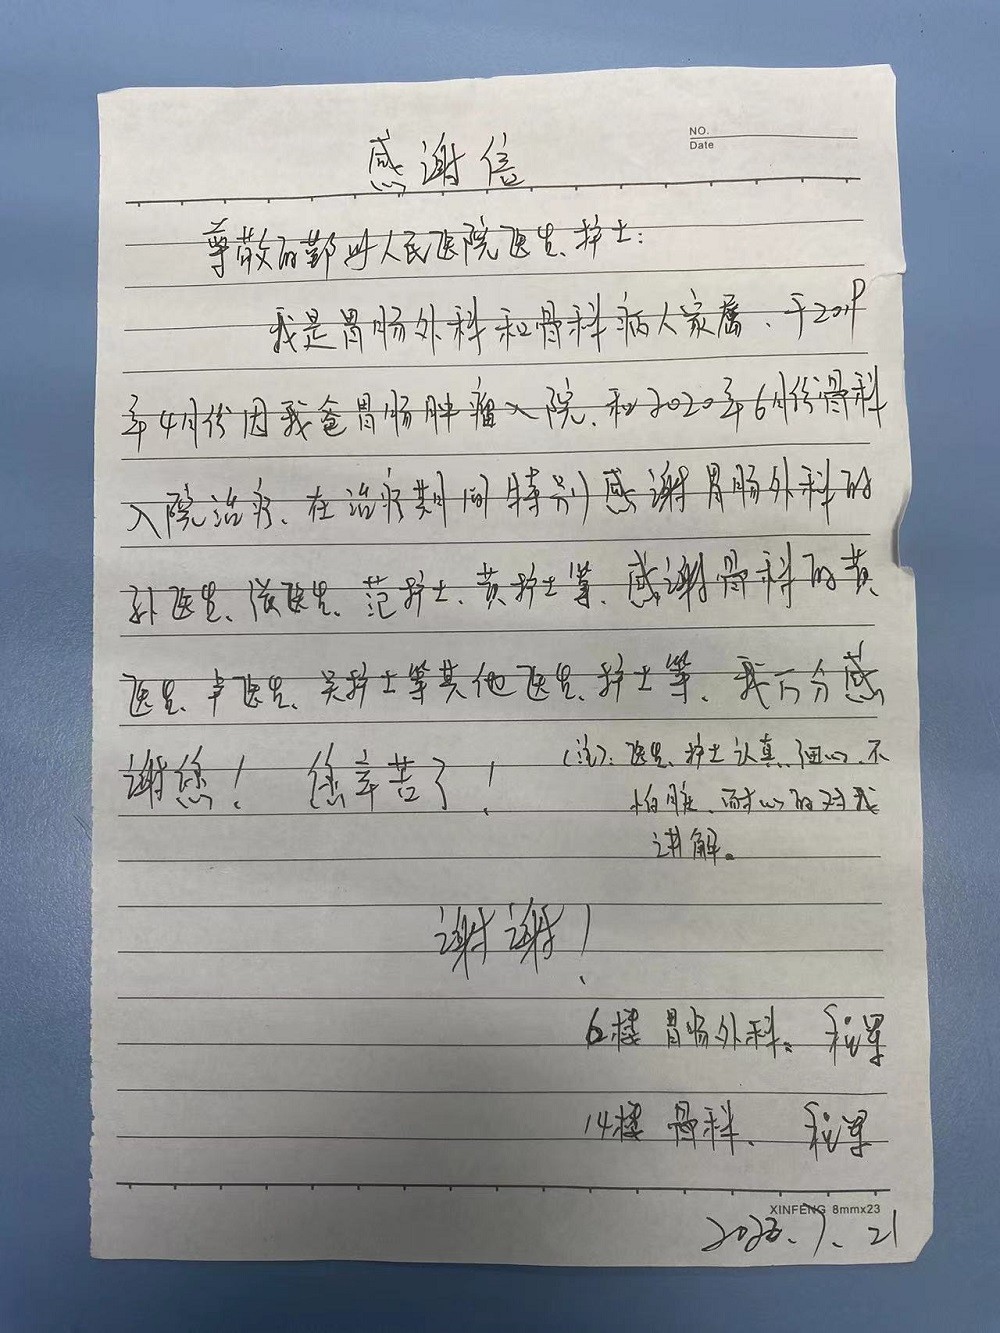 NO.
Date
感谢信
尊敬的鄞州人民医院医生、护士:
我是胃肠外科和骨科病人家属、于2019
年4月份因我爸胃肠肿瘤入院、和2020年6月份骨科
入院治疗、在治疗期间特别感谢胃肠外科的
孙医生、医生、范护士、黄护士等、感谢骨科的黄
医生、卢医生、吴护士等其他医生、护士等、我万分感
谢您! 您辛苦了!
(注): 医生、护士认真、细心、不
怕脏、耐心的对我
讲解。
谢谢!
6楼 胃肠外科。
14楼 骨科、
XINFENG 8mmx23
7.21